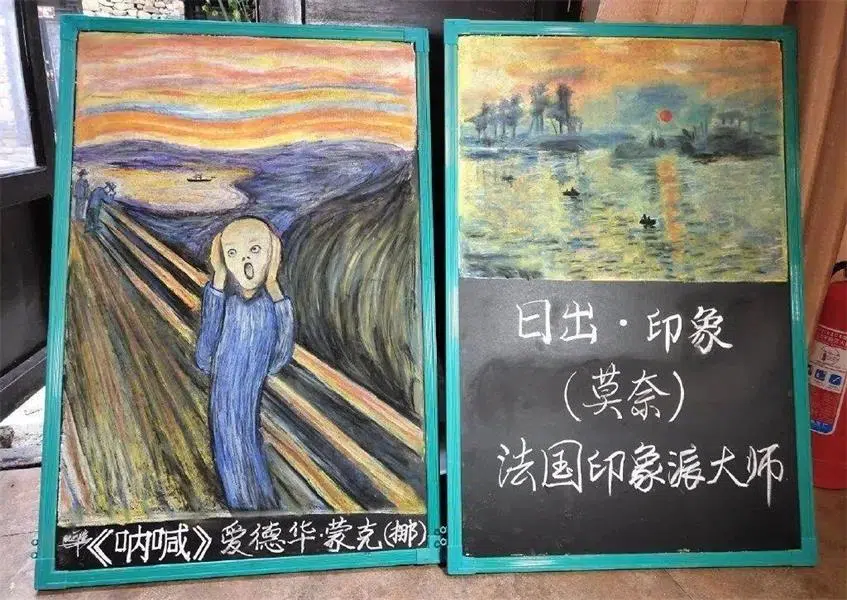 《呐喊》爱德华·蒙克(挪)
日出·印象
(莫奈)
法国印象派大师